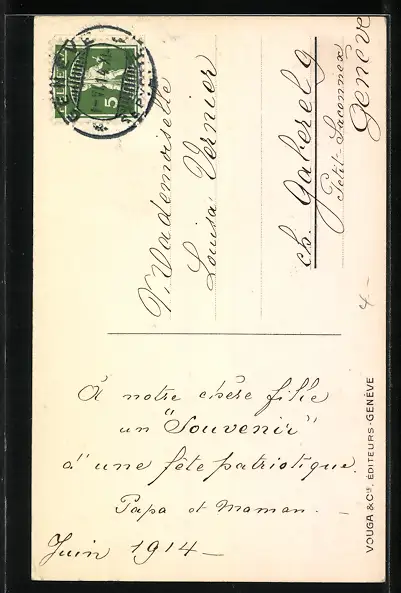 Mademoiselle
Louisa Vernier
ch. Gaberel 9
Petit-Saconnex
Genève
À notre chère fille
un "Souvenir"
d'une fête patriotique.
Papa et Maman.
Juin 1914 —
VOUGA & Cie, ÉDITEURS-GENÈVE
4-
HELVETIA
5
GENÈVE